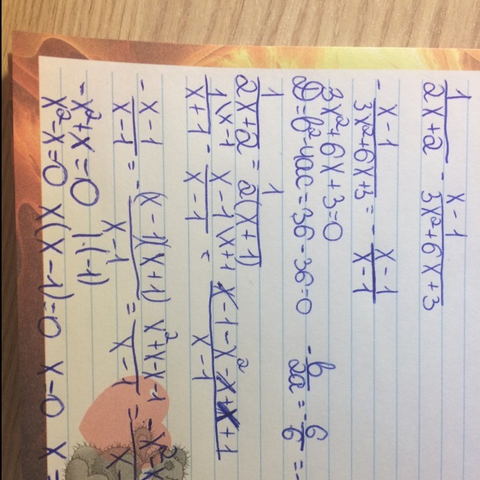 1/(2x+2) - (x-1)/(3x²+6x+3)
(-x-1)/(3x²+6x+3) = -(x-1)/(x-1)
3x²+6x+3=0
D=b²-4ac=36-36=0 -b/2a = -6/6 = -
1/(2x+2) = 1/(2(x+1))
1\x-1/(x+1) - x-1\x+1/(x-1) = (x-1-x²-x+x+1)/(x-1)
(-x-1)/(x-1) = -(x-1)(x+1)/(x-1) = (x²+x-x-1)/(x-1) =
-x²+x=0 |·(-1)
x²-x=0 x(x-1)=0 x-0 x